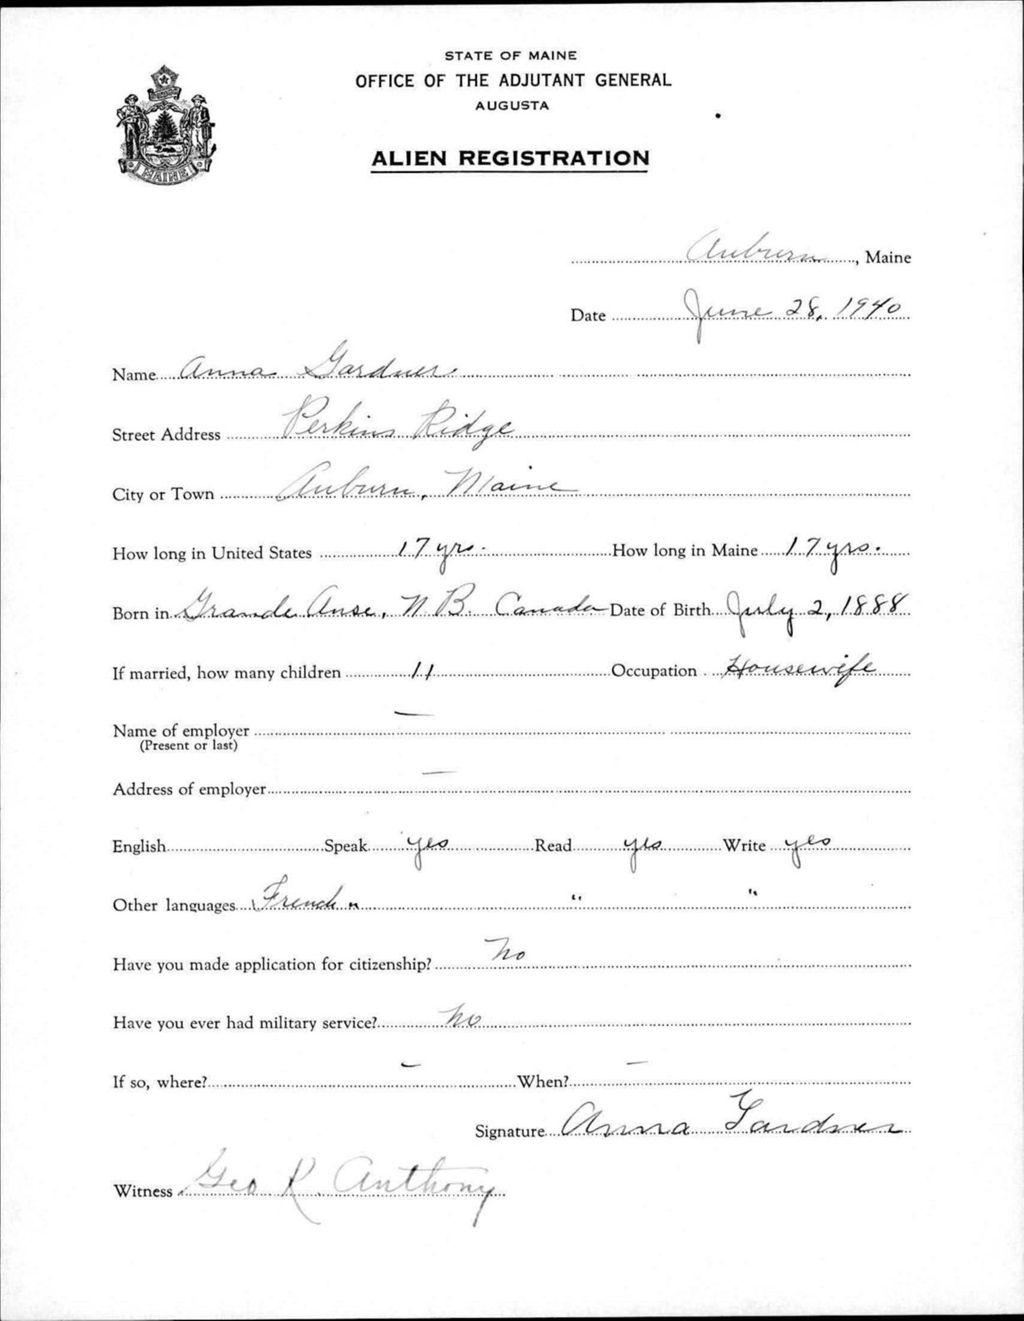 STATE OF MAINE
OFFICE OF THE ADJUTANT GENERAL
AUGUSTA
ALIEN REGISTRATION
MAINE
Auburn, Maine
Date June 28, 1940
Name Anna Gardner
Street Address Perkins Ridge
City or Town Auburn, Maine
How long in United States 17 yrs. How long in Maine 17 yrs.
Born in Grande Anse, N.B. Canada Date of Birth July 2, 1888
If married, how many children 11 Occupation Housewife
Name of employer —
(Present or last)
Address of employer —
English Speak yes Read yes Write yes
Other languages French " " "
Have you made application for citizenship? No
Have you ever had military service? No
If so, where? — When? —
Signature Anna Gardner
Witness Geo R. Anthony